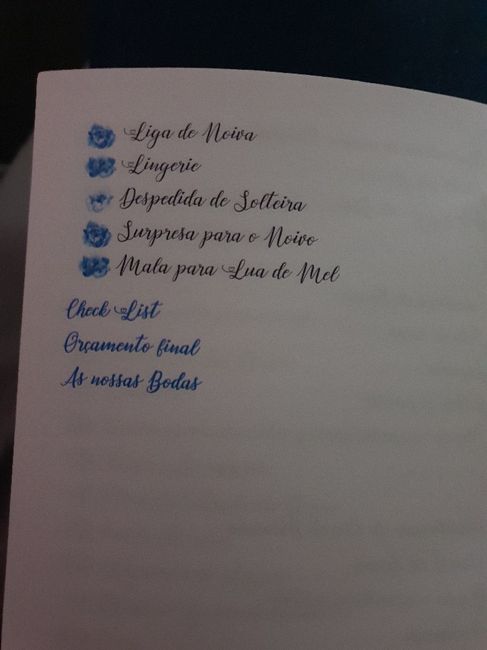 Liga de Noiva
Lingerie
Despedida de Solteira
Surpresa para o Noivo
Mala para Lua de Mel
Check List
Orçamento final
As nossas Bodas